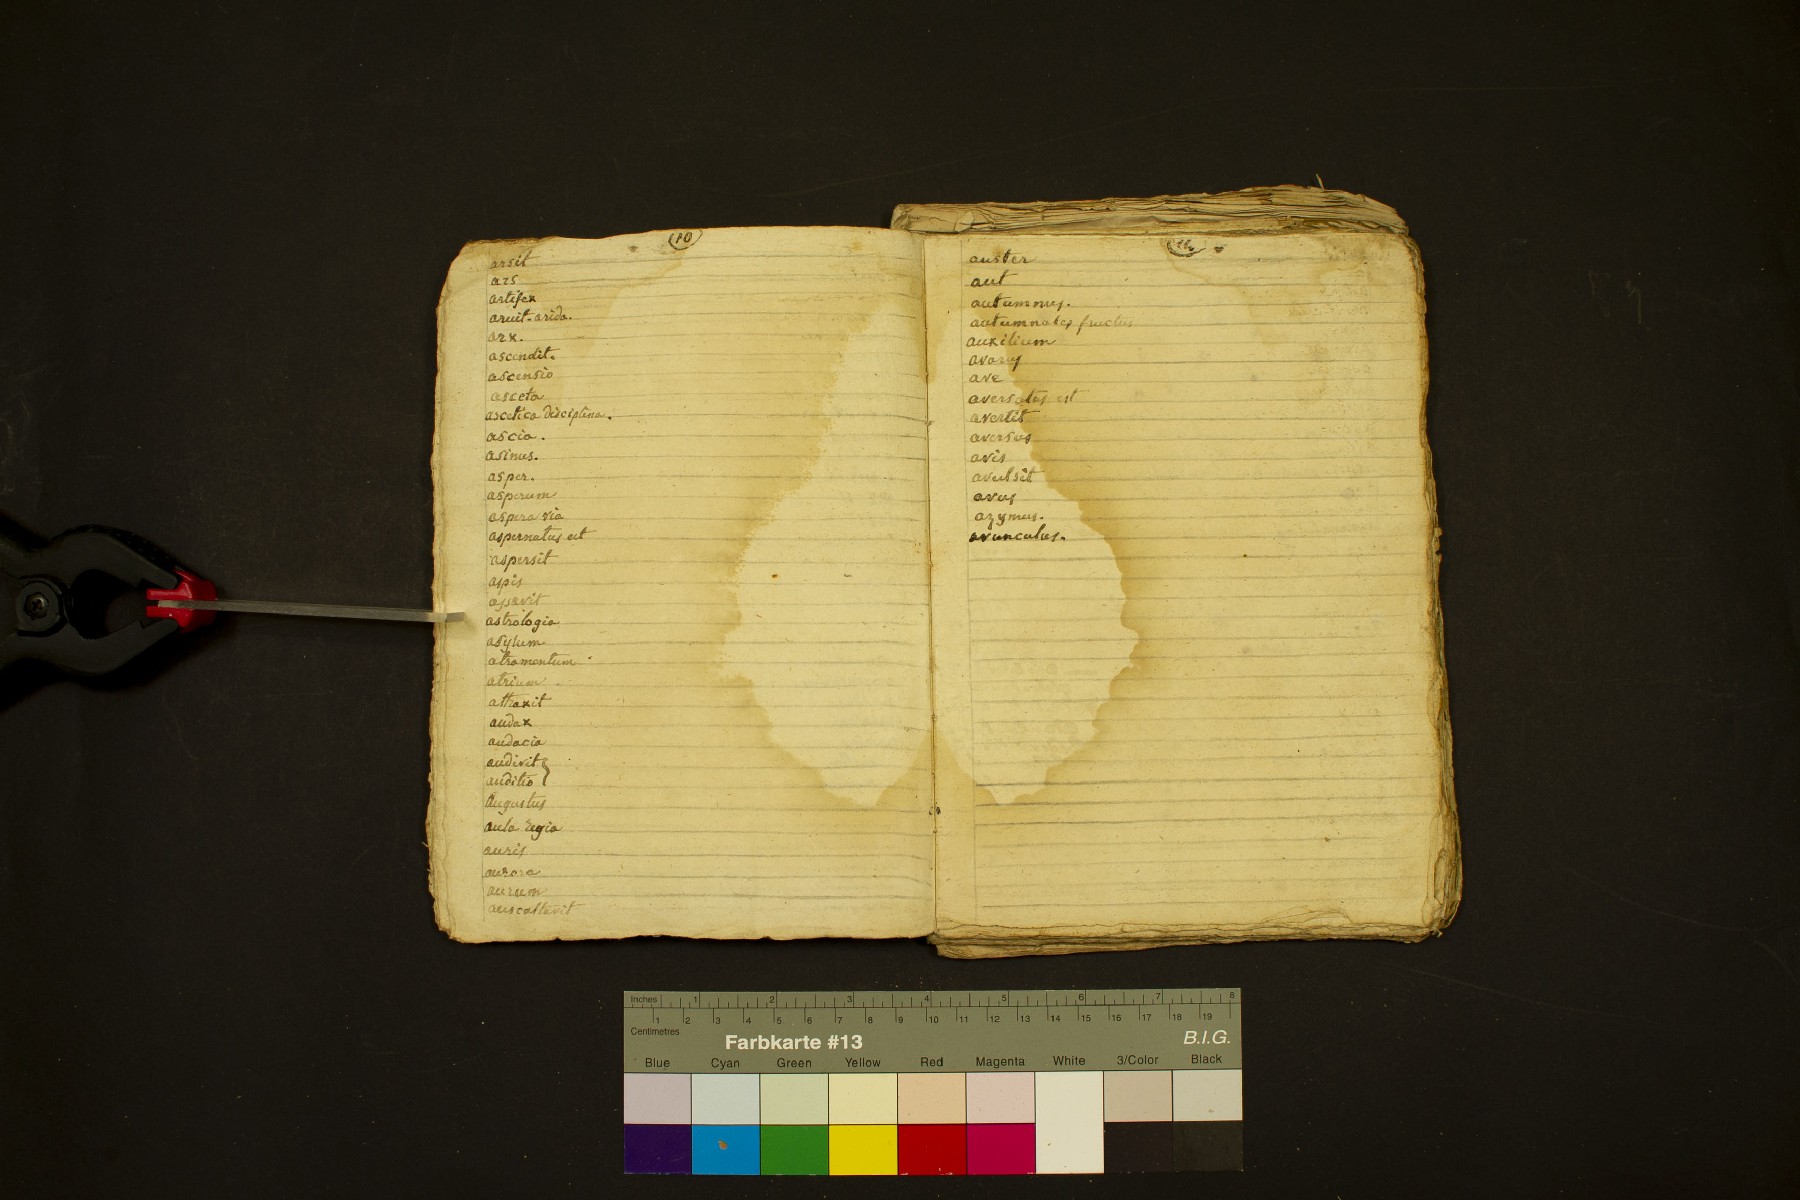 (10)
arsit
ars
artifex
aruit-arida.
arx.
ascendit.
ascensio
asceta
ascetica disciplina.
ascia.
asinus.
asper.
asperum
aspera via
aspernatus est
aspersit
aspis
assavit
astrologia
asylum
atramentum
atrium
attraxit
audax
audacia
audivit
auditio
Augustus
aula regia
auris
aurora
aurum
auscultavit
auster
aut
autumnus.
autumnales fructus
auxilium
avarus
ave
aversatus est
avertit
aversus
avis
avulsit
avus
azymus.
avunculus.
Inches 1 2 3 4 5 6 7 8
1 2 3 4 5 6 7 8 9 10 11 12 13 14 15 16 17 18 19
Centimetres
Farbkarte #13 B.I.G.
Blue Cyan Green Yellow Red Magenta White 3/Color Black